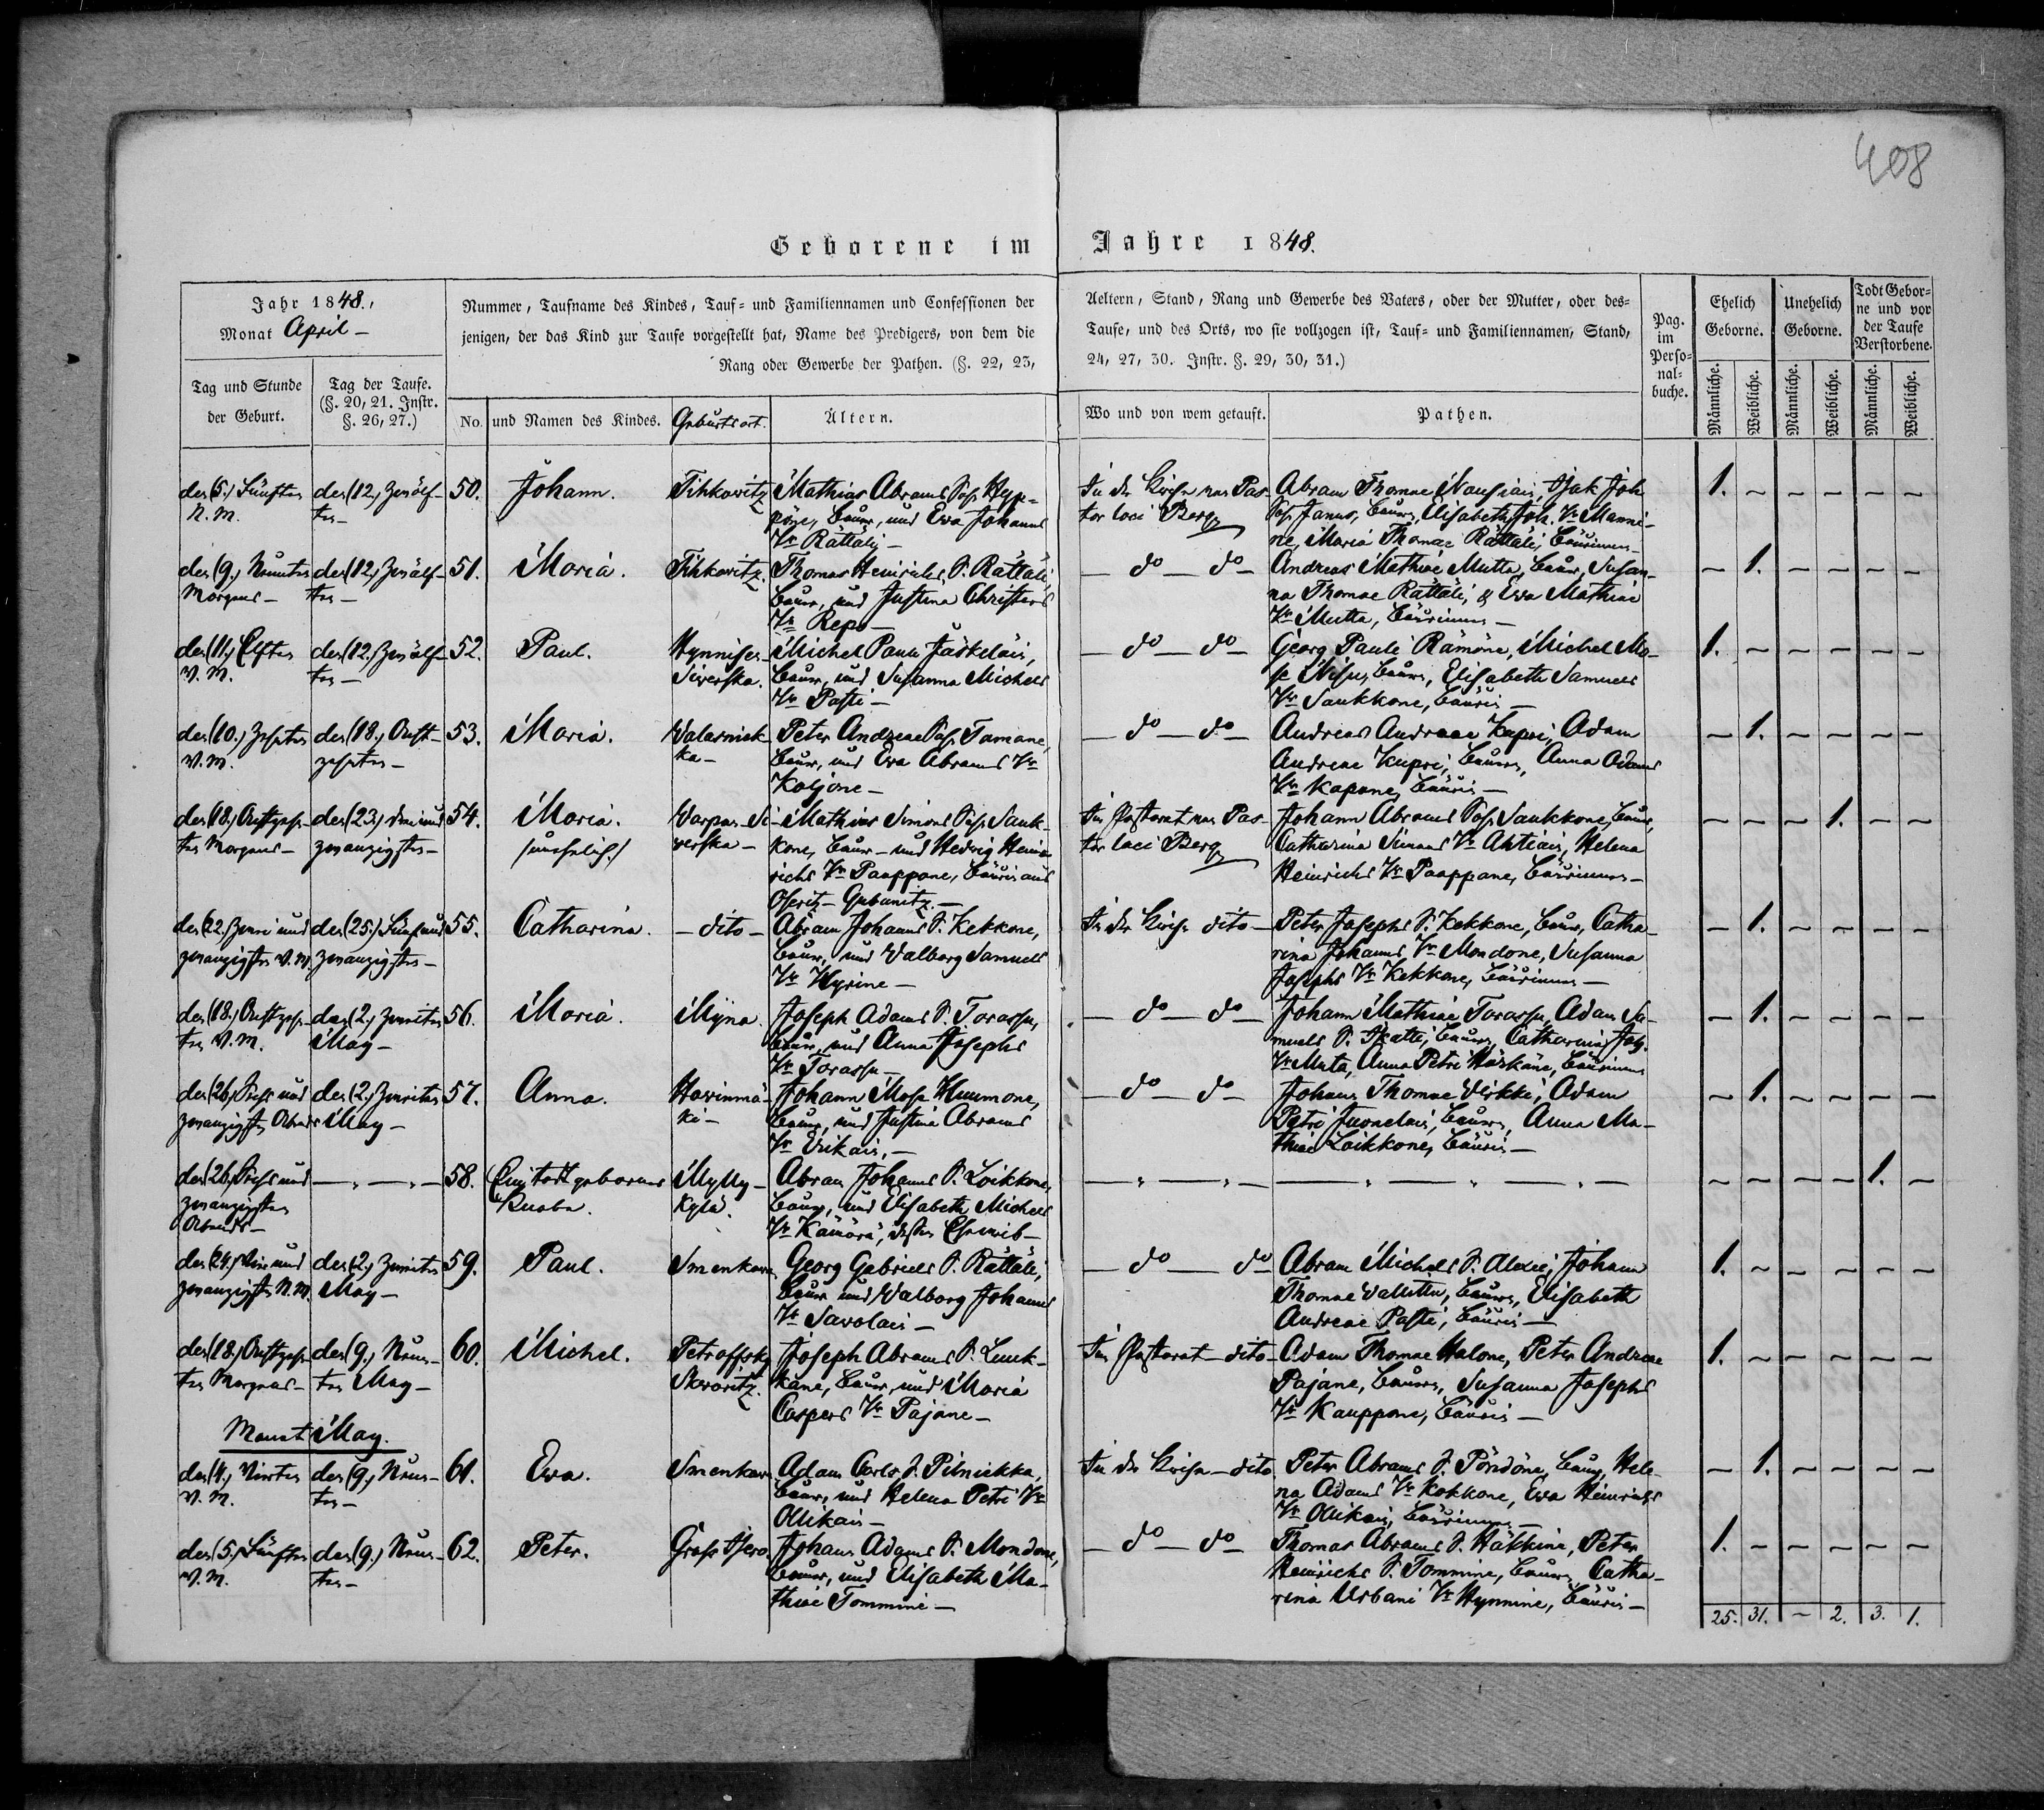 408
Geborene im Jahre 1848.
Jahr 1848.,
Monat April –
Nummer, Taufname des Kindes, Tauf- und Familiennamen und Confessionen der
jenigen, der das Kind zur Taufe vorgestellt hat, Name des Predigers, von dem die
Rang oder Gewerbe der Pathen. (§. 22, 23,
Aeltern, Stand, Rang und Gewerbe des Vaters, oder der Mutter, oder des-
Taufe, und des Orts, wo sie vollzogen ist, Tauf- und Familiennamen, Stand,
24, 27, 30. Instr. §. 29, 30, 31.)
Pag.
im
Perso-
nal-
buche.
Ehelich
Geborne.
Unehelich
Geborne.
Todt Gebor-
ne und vor
der Taufe
Verstorbene.
Tag und Stunde
der Geburt.
Tag der Taufe.
(§. 20, 21. Instr.
§. 26, 27.)
No.
und Namen des Kindes.
Geburtsort.
Ältern.
Wo und von wem getauft.
Pathen.
Männliche.
Weibliche.
Männliche.
Weibliche.
Männliche.
Weibliche.
den (5.) Fünften
N. M.
den (12.) Zwölf-
ten –
50.
Johann.
Tihkowitz
Mathias Abrams Sohn Hyp-
pöne, Bauer, und Ewa Johanns
Tr Rättäli –
In der Kirche von Pas-
tor loci Berg
Abram Thomae Nousiais, Isak Joh
Sohn Janus, Bauern, Elisabeth Joh. Tr Manni-
ne, Maria Thomae Rättäli, Bäurinnen –
1. – – – – –
den (9.) Neunten
Morgens –
den (12.) Zwölf-
ten –
51.
Maria.
Tihkowitz.
Thomas Heinrichs S. Rättäli,
Bauer, und Justina Christers
Tr Repo –
– do – do –
Andreas Mathiae Mutta, Bauer, Susan-
na Thomae Rättäli, & Ewa Mathiae
Tr Mutta, Bäurinnen –
– 1. – – – –
den (11.) Elften
V. M.
den (12.) Zwölf-
ten –
52.
Paul.
Hynnisen-
Siwerska.
Michel Pauli Jäskeläis,
Bauer, und Susanna Michels
Tr Pasti –
– do – do –
Georg Pauli Rämöne, Michel Mo-
se Nisu, Bauern, Elisabeth Samuels
Tr Saukkone, Bäurin –
1. – – – – –
den (10.) Zehnten
V. M.
den (18.) Acht-
zehnten –
53.
Maria.
Walarnick-
ka –
Peter Andreae Sohn Tamane,
Bauer, und Ewa Abrams Tr
Koljone –
– do – do –
Andreas Andreae Kupri, Adam
Andreae Kupri, Bauern, Anna Adams
Tr Kapane, Bäurin –
– 1. – – – –
den (18.) Achtzehn-
ten Morgens –
den (23.) drei und
zwanzigsten –
54.
Maria.
/unehelich/
Warpas-Si-
werska –
Mathias Simons Sohn Sauk-
kone, Bauer – und Hedwig Hein-
richs Tr Paappane, Bäurin aus
Oseritz-Gubanitz. –
Im Pastorat von Pas-
tor loci Berg
Johann Abrams Sohn Saukkone, Bauer,
Catharina Simons Tr Ahtiais, Helena
Heinrichs Tr Paappane, Bäurinnen –
– – – 1. – –
den (22.) Zwei und
zwanzigsten V. M.
den (25.) Fünf und
zwanzigsten –
55.
Catharina.
– dito –
Abram Johanns S. Kekkone,
Bauer, und Walborg Samuels
Tr Hyrine –
In der Kirche dito –
Peter Josephs S. Kekkone, Bauer, Catha-
rina Johanns Tr Mondone, Susanna
Josephs Tr Kekkone, Bäurinnen –
– 1. – – – –
den (18.) Achtzehn-
ten V. M.
den (2.) Zweiten
May –
56.
Maria.
Myna.
Joseph Adams S. Torassu,
Bauer, und Anna Josephs
Tr Torassu –
– do – do –
Johann Mathiae Torassu, Adam Sa-
muels S. Skatti, Bauern, Catharina Joh.
Tr Muta, Anna Petri Härkäne, Bäurinnen
– 1. – – – –
den (26.) Sechs und
zwanzigsten Abends
den (2.) Zweiten
May –
57.
Anna.
Hawinmä-
ki –
Johann Mose Hummone,
Bauer, und Justina Abrams
Tr Orikais, –
– do – do –
Johann Thomae Virkki, Adam
Petri Juonelais, Bauern, Anna Ma-
thiae Loikkone, Bäurin –
– 1. – – – –
den (26.) Sechs und
zwanzigsten
Abends –
– „ – „ –
58.
Ein todt geborener
Knabe.
Mylly-
kylä.
Abram Johanns S. Loikkone,
Bauer, und Elisabeth Michels
Tr Kämärä, dessen Eheweib –
– „ – „ – – „ – „ – „ –
– – – – 1. –
den (24.) Vier und
zwanzigsten N. M.
den (2.) Zweiten
May –
59.
Paul.
Smenkowa
Georg Gabriels S. Rättäli,
Bauer und Walborg Johanns
Tr Sawolais –
– do – do
Abram Michels S. Alexei, Johann
Thomae Wallittu, Bauern, Elisabeth
Andreae Pasti, Bäurin –
1. – – – – –
den (18.) Achtzehn-
ten Morgens –
den (9.) Neun-
ten May –
60.
Michel.
Petroffsky
Skworitz.
Joseph Abrams S. Luuk-
käne, Bauer, und Maria
Caspers Tr Pajane –
Im Pastorat – dito –
Adam Thomae Halone, Peter Andreae
Pajane, Bauern, Susanna Josephs
Tr Kauppone, Bäurin –
1. – – – – –
Monat May.
den (4.) Vierten
V. M.
den (9.) Neun-
ten –
61.
Ewa.
Smenkowa
Adam Carls S. Pilniekka,
Bauer, und Helena Petri Tr
Ollikais –
In der Kirche – dito
Peter Abrams S. Pöndöne, Bauer, Hele-
na Adams Tr Kokkone, Ewa Heinrichs
Tr Ollikais, Bäurinnen –
– 1. – – – –
den (5.) Fünften
V. M.
den (9.) Neun-
ten –
62.
Peter.
Gross Isero.
Johann Adams S. Mondone,
Bauer, und Elisabeth Ma-
thiae Tommine –
– do – do –
Thomas Abrams S. Häkkine, Peter
Heinrichs S. Tommine, Bauern, Catha-
rina Urbani Tr Hynnine, Bäurin –
1. – – – – –
25. 31. – 2. 3. 1.